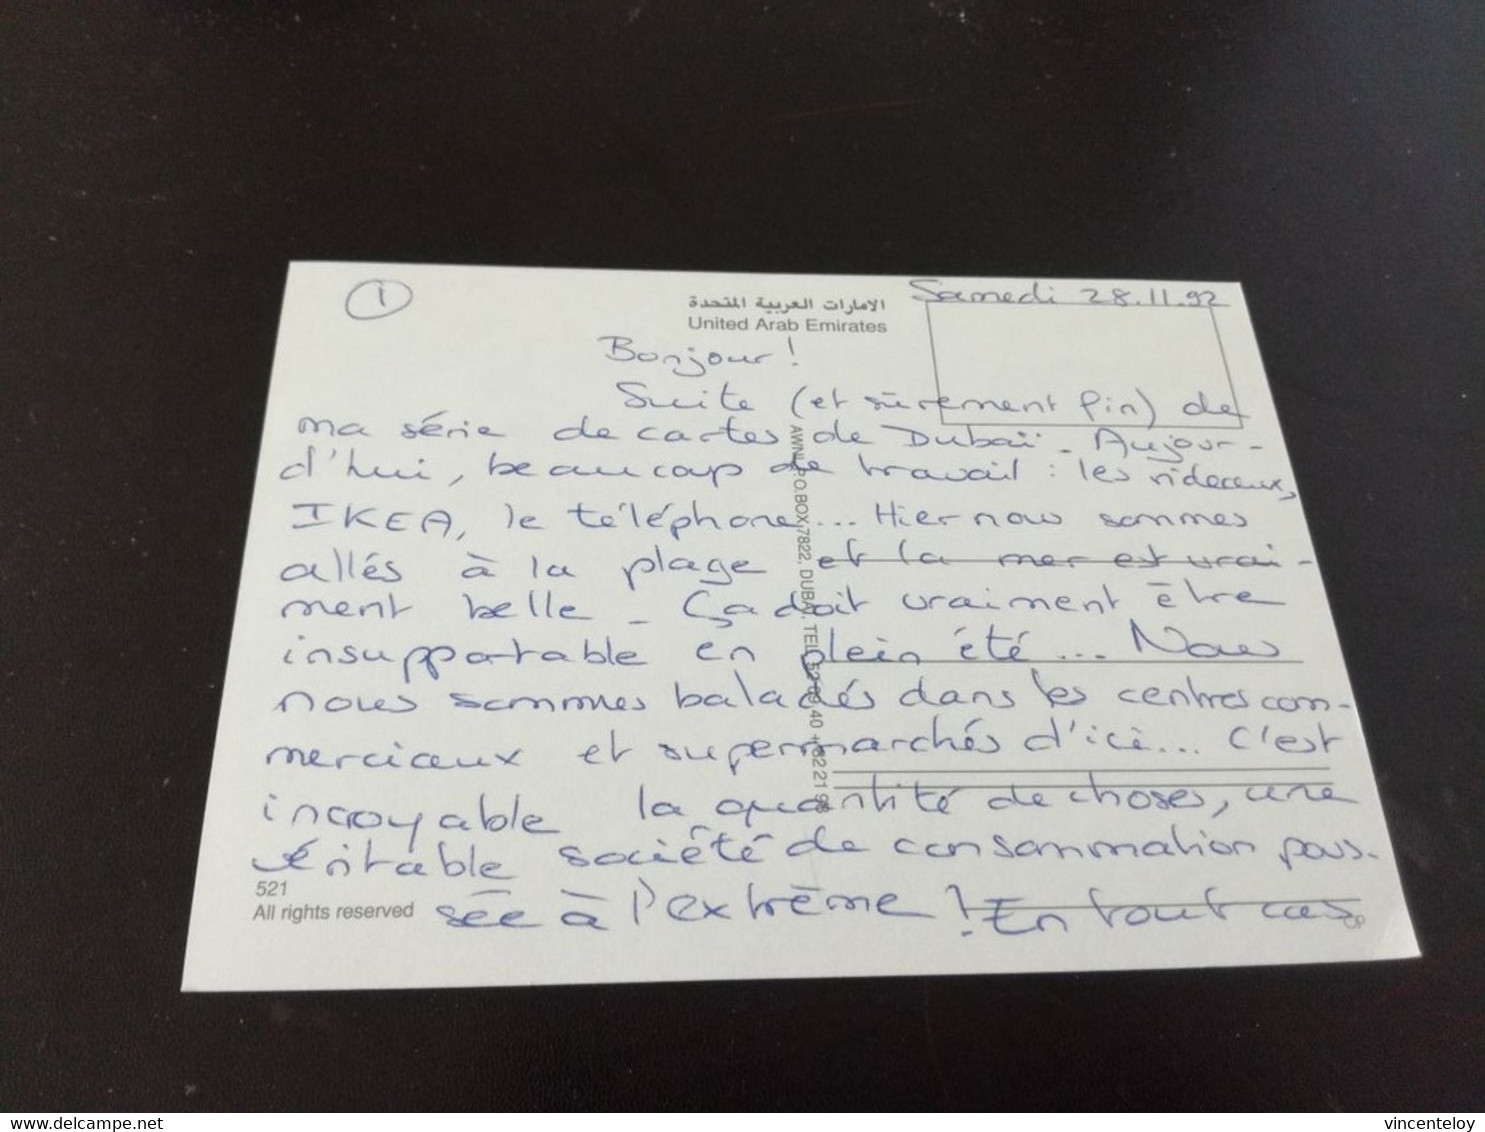 1
Samedi 28.11.92
الامارات العربية المتحدة
United Arab Emirates
Bonjour !
Suite (et sûrement fin) de
ma série de cartes de Dubaï - Aujour-
d'hui, beaucoup de travail : les rideaux,
IKEA, le téléphone... Hier nous sommes
allés à la plage et la mer est vrai-
ment belle - Ça doit vraiment être
insupportable en plein été... Nous
nous sommes baladés dans les centres com-
merciaux et supermarchés d'ici... C'est
incroyable la quantité de choses, une
véritable société de consommation pous-
sée à l'extrême ! En tout cas
AWNI, P.O.BOX 7822, DUBAI, TEL
521
All rights reserved
delcampe.net
vincenteloy